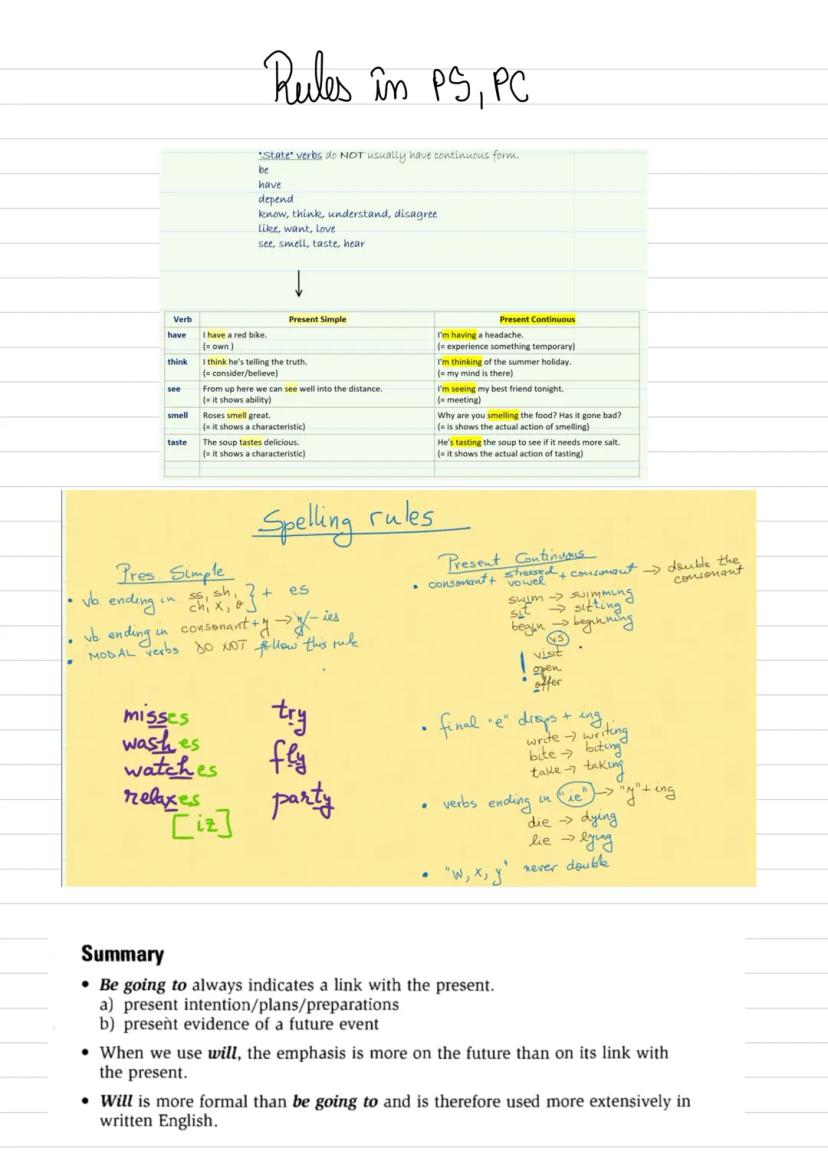 Rules in PS, PC
"State" verbs do NOT usually have continuous form.
be
have
depend
know, think, understand, disagree
like, want, love
see, smell, taste, hear
↓
Verb Present Simple Present Continuous
have I have a red bike. I'm having a headache.
(= own ) (= experience something temporary)
think I think he's telling the truth. I'm thinking of the summer holiday.
(= consider/believe) (= my mind is there)
see From up here we can see well into the distance. I'm seeing my best friend tonight.
(= it shows ability) (= meeting)
smell Roses smell great. Why are you smelling the food? Has it gone bad?
(= it shows a characteristic) (= is shows the actual action of smelling)
taste The soup tastes delicious. He's tasting the soup to see if it needs more salt.
(= it shows a characteristic) (= it shows the actual action of tasting)
Spelling rules
Pres. Simple
• vb. ending in ss, sh, } + es
ch, x, o
• vb. ending in consonant + y → y - ies
• MODAL verbs DO NOT follow this rule
misses
washes
watches
relaxes
[iz]
try
fly
party
Present Continuous
• consonant + stressed + consonant → double the
vowel consonant
swim → swimming
sit → sitting
begin → beginning
VS
! visit
open
offer
• final "e" drops + ing
write → writing
bite → biting
take → taking
• verbs ending in "ie" → "y" + ing
die → dying
lie → lying
• "w, x, y" never double
Summary
• Be going to always indicates a link with the present.
a) present intention/plans/preparations
b) present evidence of a future event
• When we use will, the emphasis is more on the future than on its link with
the present.
• Will is more formal than be going to and is therefore used more extensively in
written English.